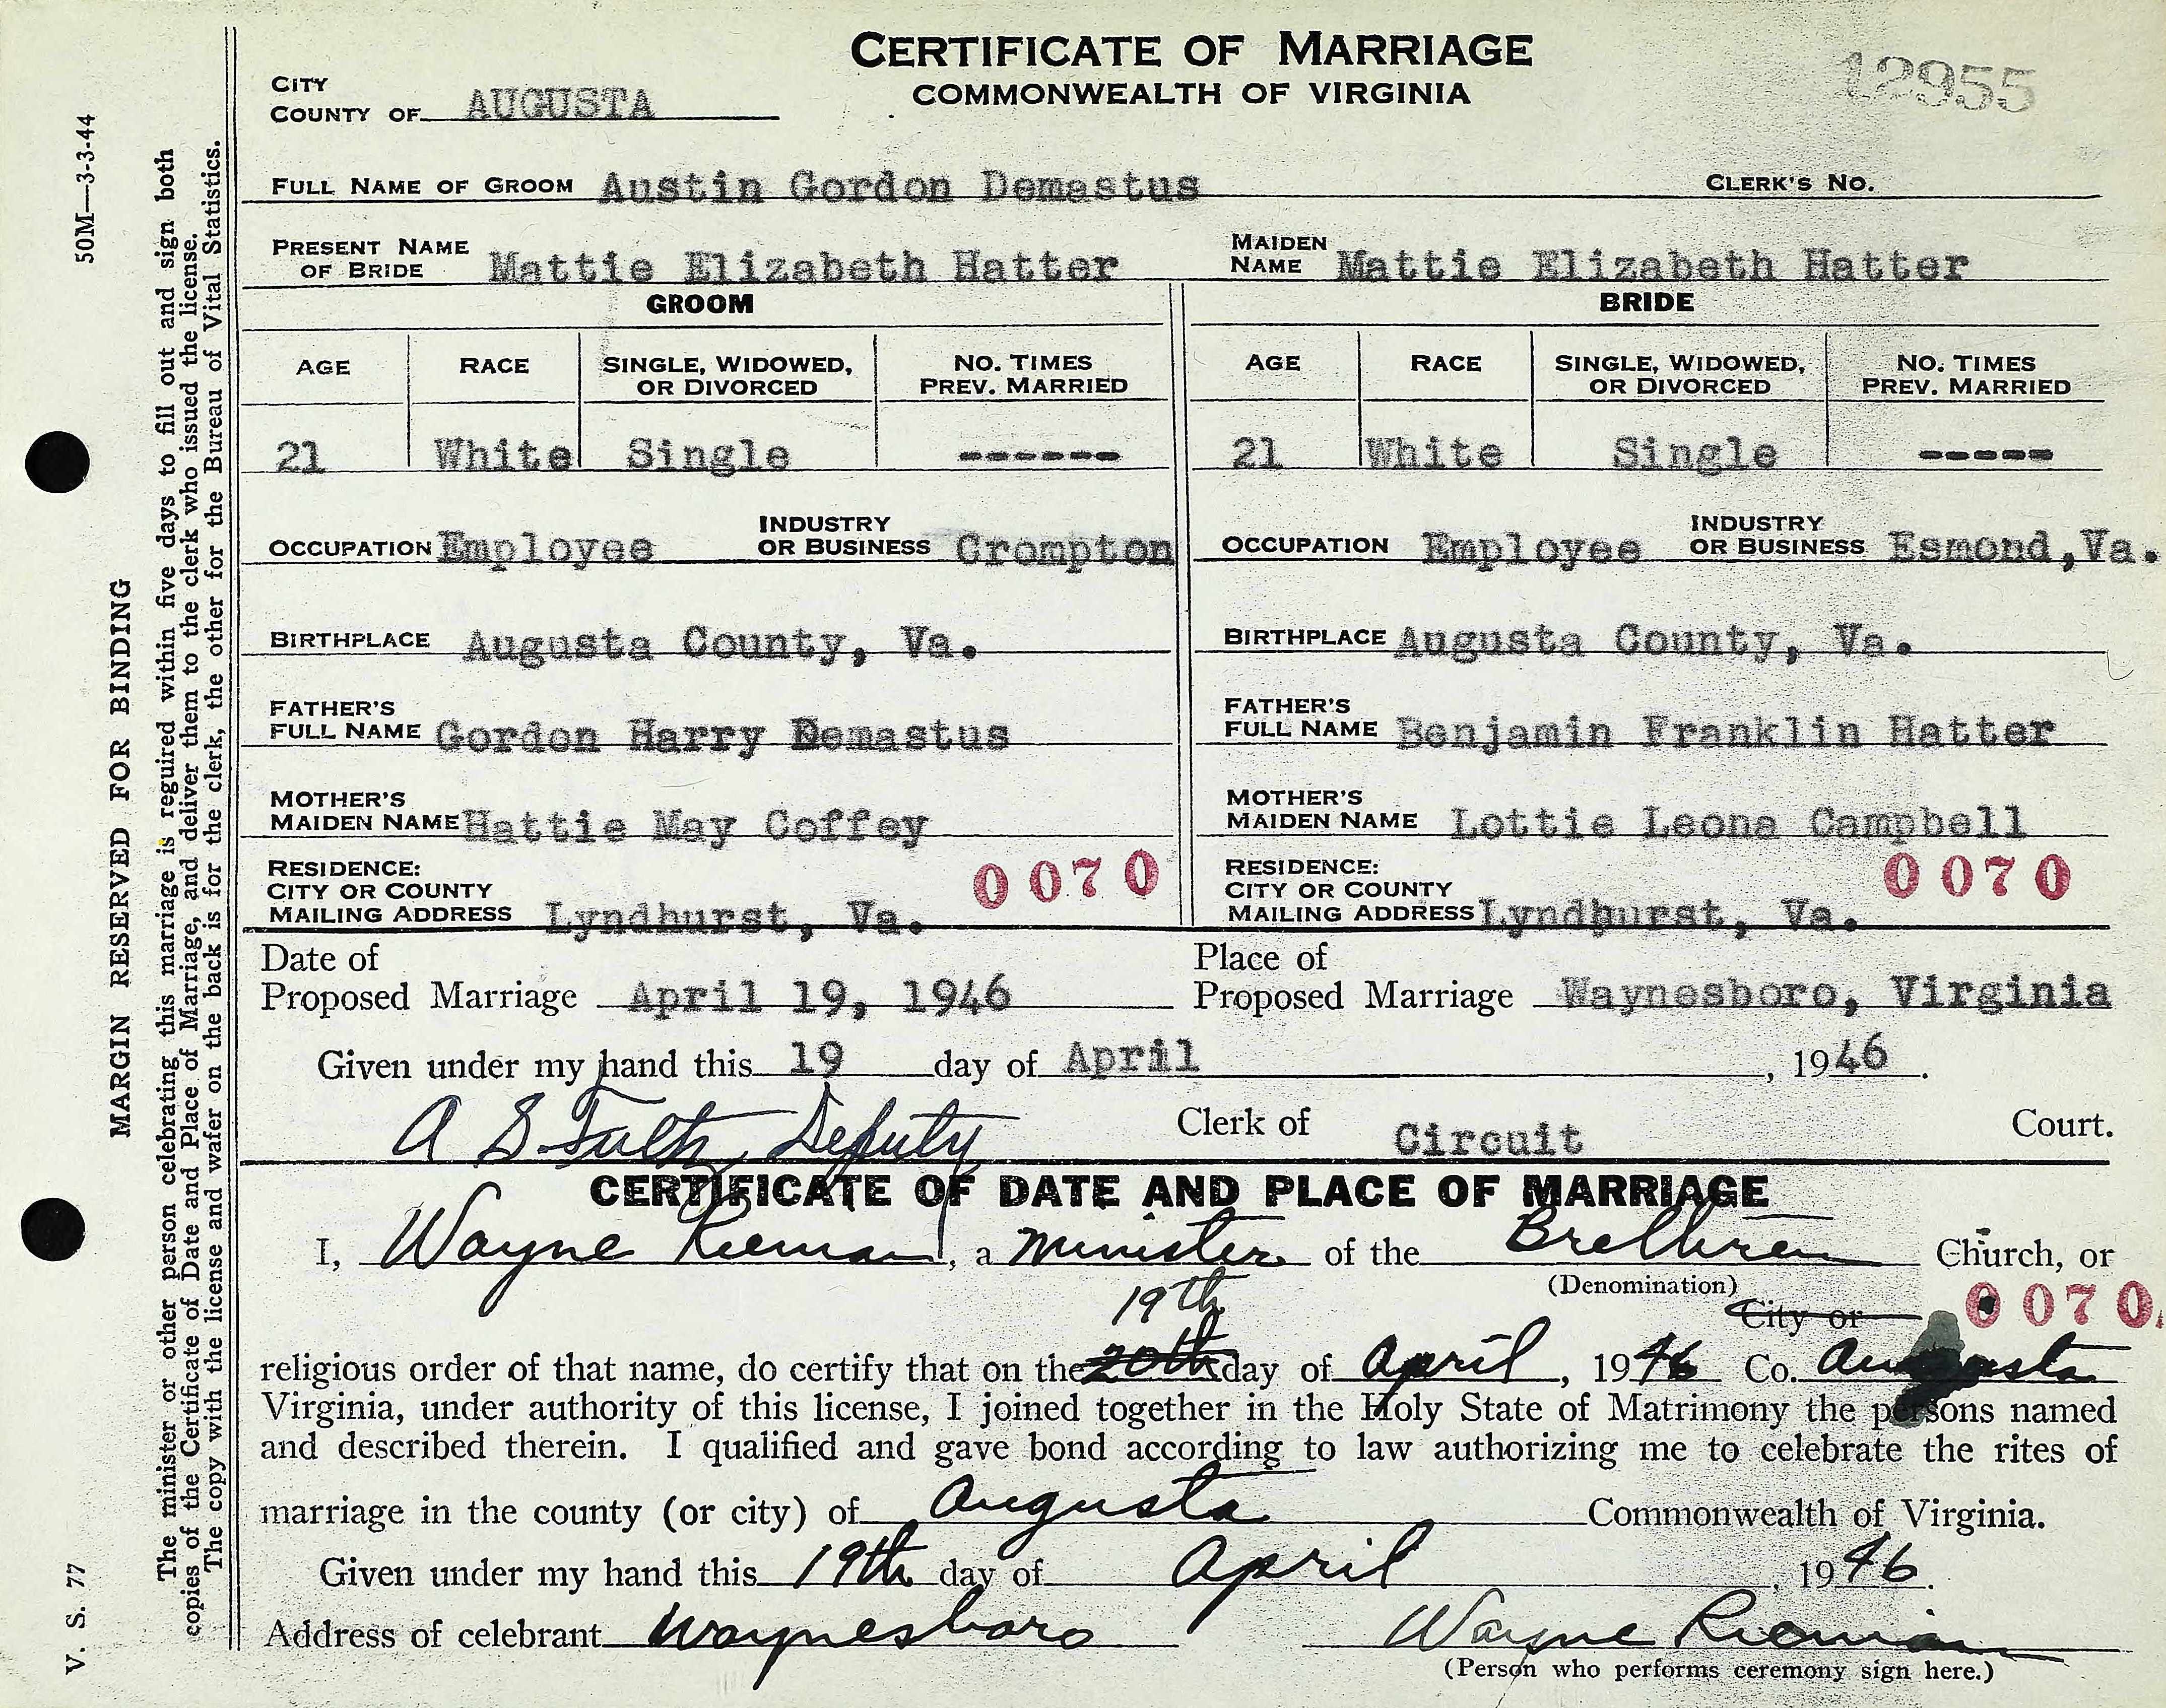 CERTIFICATE OF MARRIAGE
COMMONWEALTH OF VIRGINIA
12955
CITY
COUNTY OF AUGUSTA
FULL NAME OF GROOM Austin Gordon Demastus CLERK'S NO.
PRESENT NAME OF BRIDE Mattie Elizabeth Hatter MAIDEN NAME Mattie Elizabeth Hatter
GROOM
AGE RACE SINGLE, WIDOWED, OR DIVORCED NO. TIMES PREV. MARRIED
21 White Single ------
OCCUPATION Employee INDUSTRY OR BUSINESS Crompton
BIRTHPLACE Augusta County, Va.
FATHER'S FULL NAME Gordon Harry Demastus
MOTHER'S MAIDEN NAME Hattie May Coffey
RESIDENCE:
CITY OR COUNTY 0070
MAILING ADDRESS Lyndhurst, Va.
BRIDE
AGE RACE SINGLE, WIDOWED, OR DIVORCED NO. TIMES PREV. MARRIED
21 White Single -----
OCCUPATION Employee INDUSTRY OR BUSINESS Esmond,Va.
BIRTHPLACE Augusta County, Va.
FATHER'S FULL NAME Benjamin Franklin Hatter
MOTHER'S MAIDEN NAME Lottie Leona Campbell
RESIDENCE:
CITY OR COUNTY 0070
MAILING ADDRESS Lyndhurst, Va.
Date of Proposed Marriage April 19, 1946 Place of Proposed Marriage Waynesboro, Virginia
Given under my hand this 19 day of April, 1946.
A S Fultz, Deputy Clerk of Circuit Court.
CERTIFICATE OF DATE AND PLACE OF MARRIAGE
I, Wayne Rieman, a minister of the Brethren Church, or
(Denomination)
19th City or 0070
religious order of that name, do certify that on the 20th day of April, 1946 Co. Augusta
Virginia, under authority of this license, I joined together in the Holy State of Matrimony the persons named
and described therein. I qualified and gave bond according to law authorizing me to celebrate the rites of
marriage in the county (or city) of Augusta Commonwealth of Virginia.
Given under my hand this 19th day of April, 1946.
Address of celebrant Waynesboro Wayne Rieman
(Person who performs ceremony sign here.)
50M—3-3-44
MARGIN RESERVED FOR BINDING
V. S. 77
The minister or other person celebrating this marriage is reguired within five days to fill out and sign both
copies of the Certificate of Date and Place of Marriage, and deliver them to the clerk who issued the license.
The copy with the license and wafer on the back is for the clerk, the other for the Bureau of Vital Statistics.